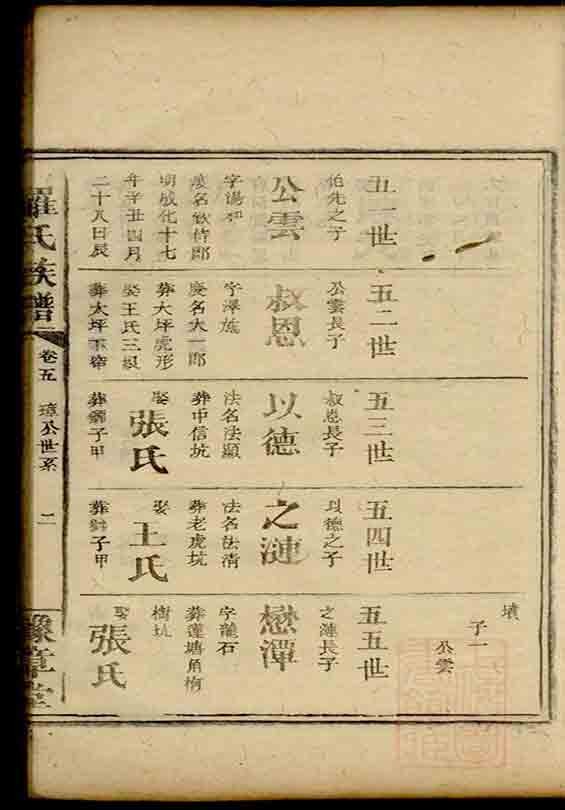 墳
子一
公雲
五一世
伯先之子
公雲
字湯和
法名欽侍郎
明成化十七
年辛丑四月
二十八日辰
五二世
公雲長子
叔恩
字澤旌
法名大一郎
葬大坪虎形
娶王氏三娘
葬大坪
五三世
叔恩長子
以德
法名法顯
葬中信坑
娶
張氏
葬獅子甲
五四世
以德之子
之漣
法名法清
葬老虎坑
娶
王氏
葬獅子甲
五五世
之漣長子
懋潭
字龍石
葬蓮塘角梅
樹坑
娶
張氏
羅氏族譜
卷五
璋公世系
二
豫章堂